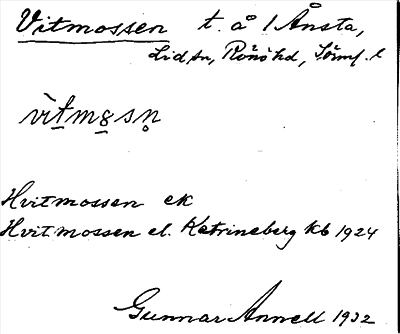 Vitmossen t. å 1 Ånsta,
Lid sn, Rönö hd, Sörml. l
vìtm8sn̥
Hvitmossen ek
Hvitmossen el. Katrineberg kb 1924
Gunnar Annell 1932